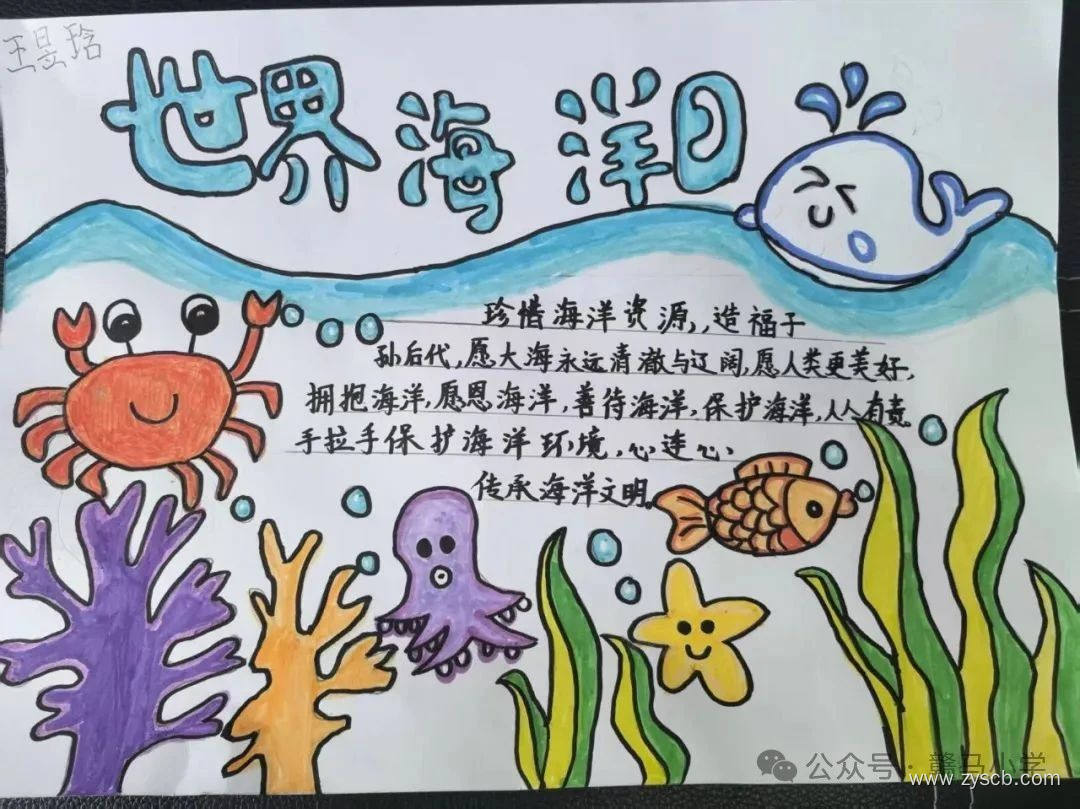 王昱琀
世界海洋日
珍惜海洋资源,,造福子
孙后代,愿大海永远清澈与辽阔,愿人类更美好,
拥抱海洋,愿恩海洋,善待海洋,保护海洋,人人有责
手拉手保护海洋环境,心连心
传承海洋文明。
公众号·赣马小学
www.zyscb.com